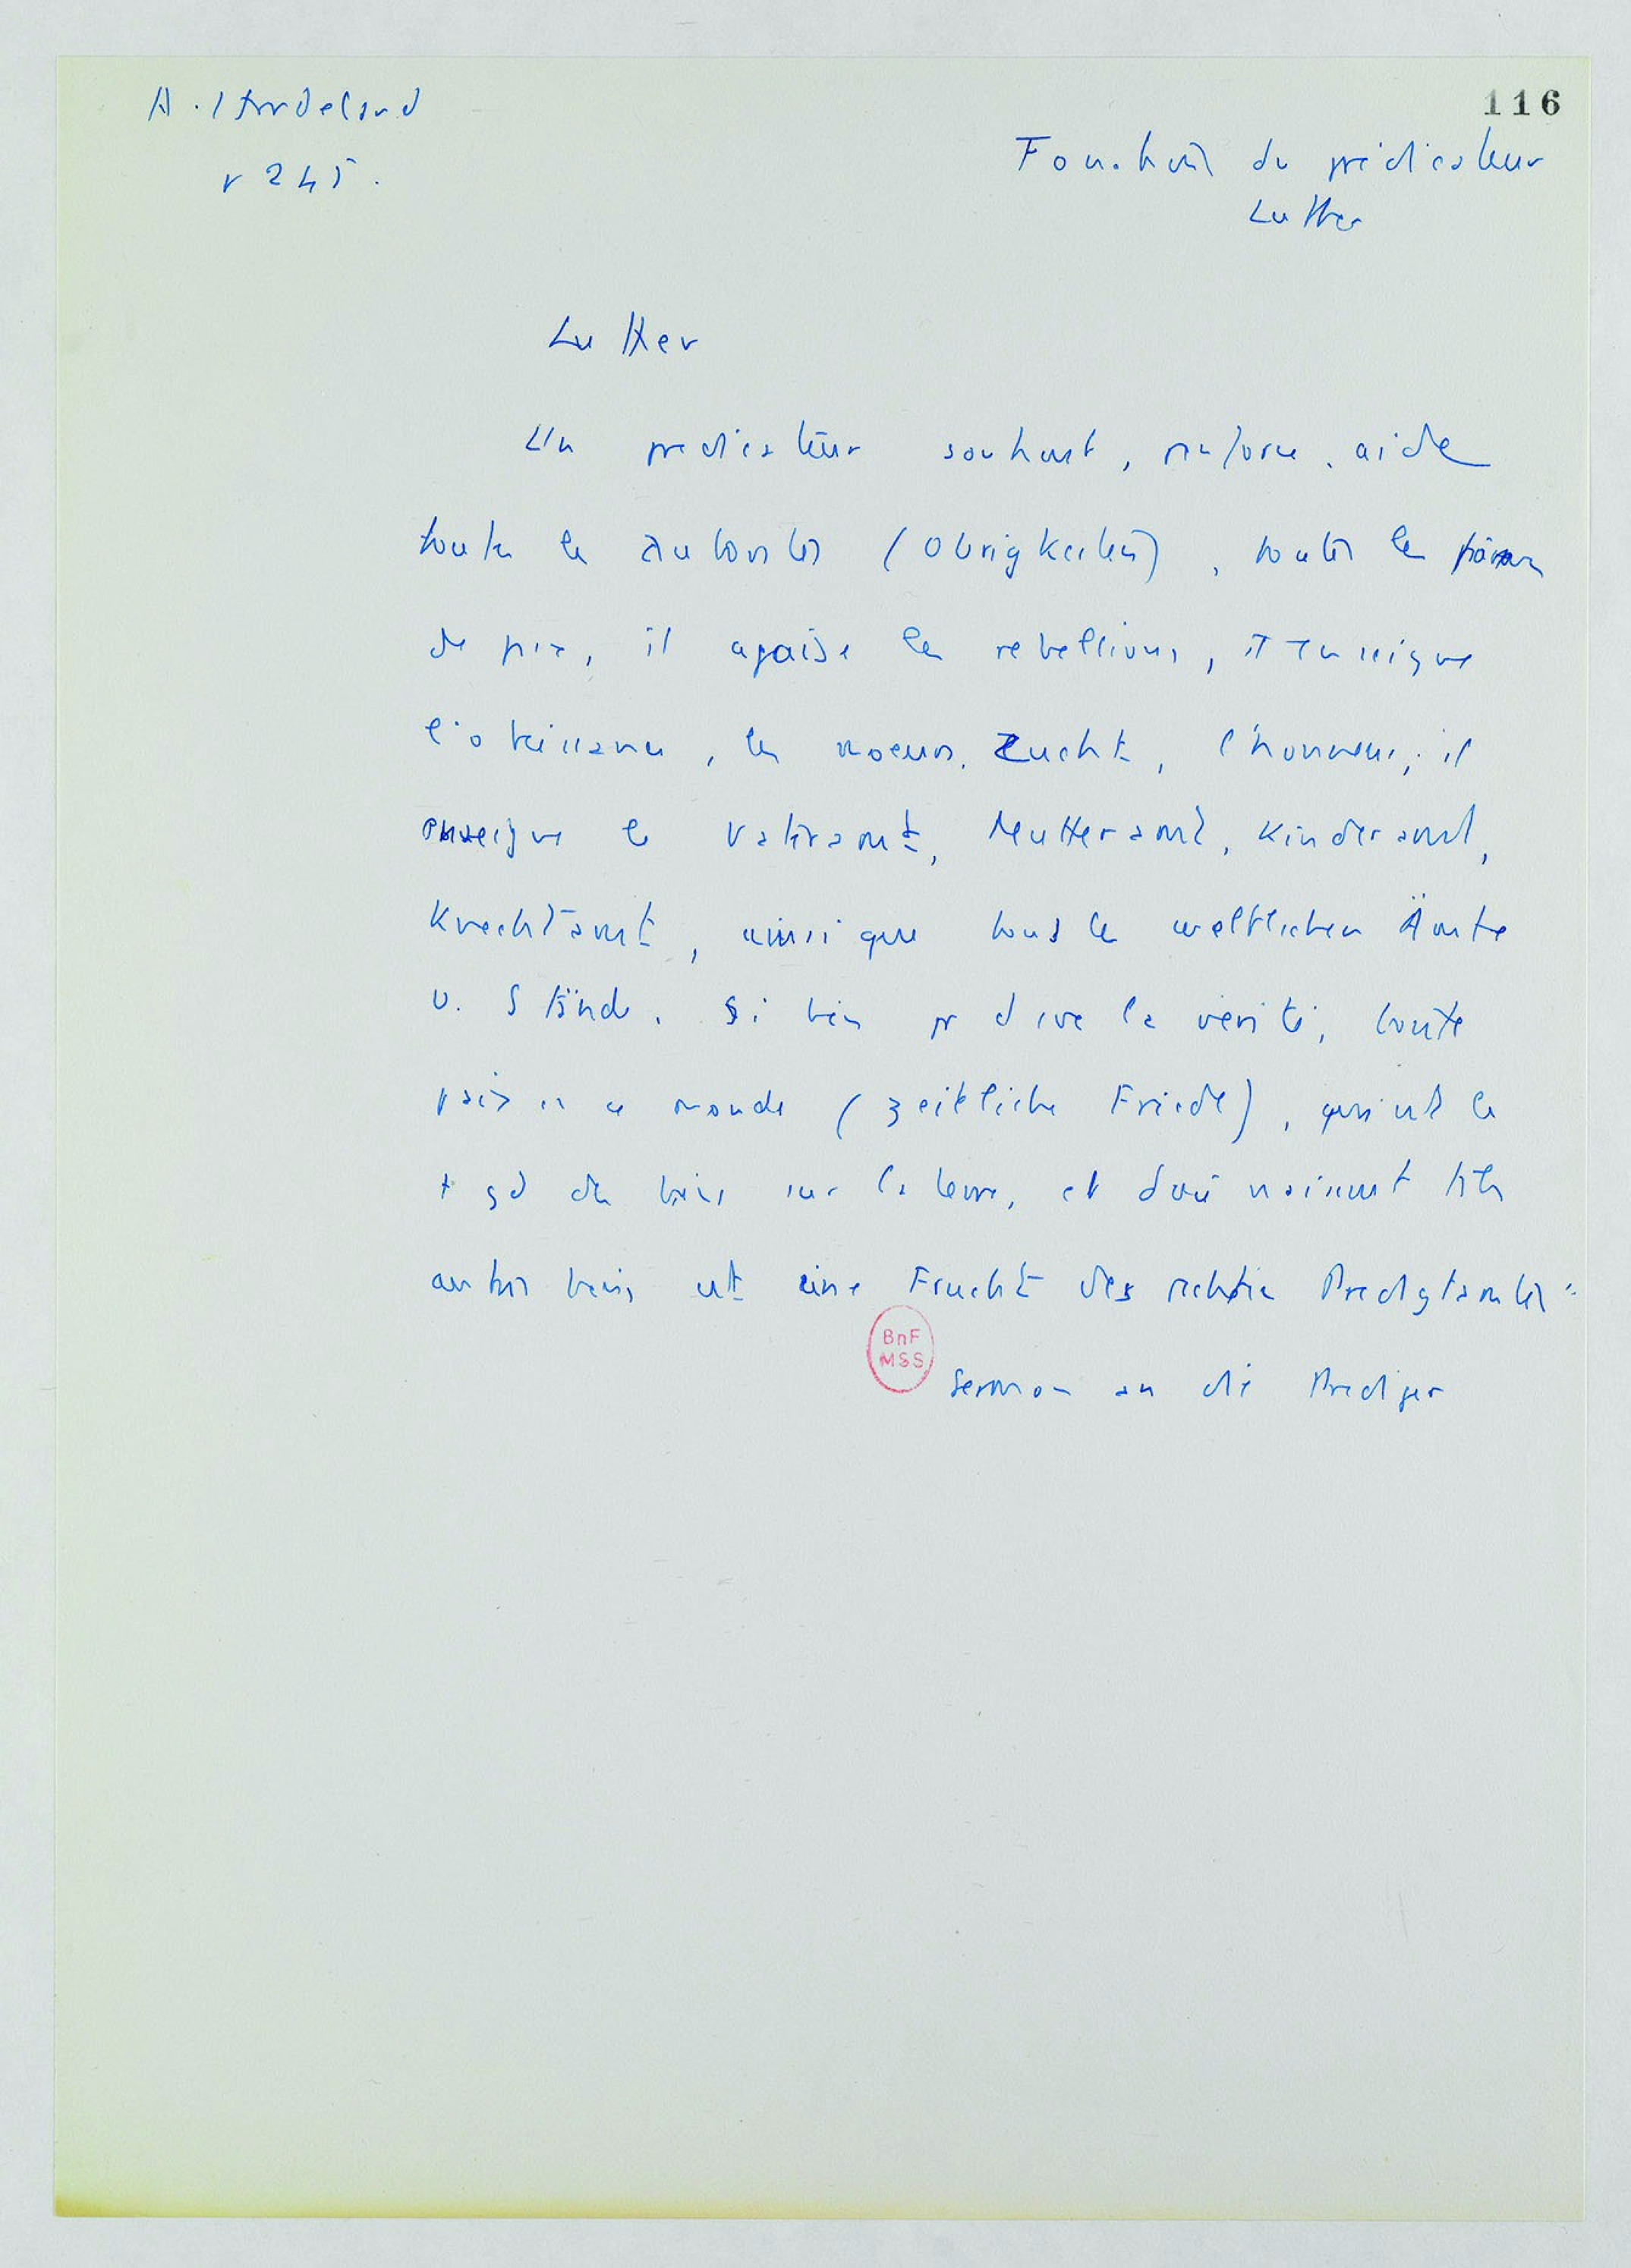 A. Hardeland
p 245.
116
Fonction du prédicateur
Luther
Luther
Un predicateur soutient, renforce, aide
toutes les autorités (Obrigkeiten), toutes les
de paix, il apaise les rebellions, il enseigne
l'obeissance, les moeurs, Zucht, l'honneur; il
enseigne le Vateramt, Mutteramt, Kinderamt,
Knechtamt, ainsi que tous les weltlichen Ämter
u. Stände. Si bien pr dire la vérité, toute
paix en ce monde (zeitliche Friede), qui est le
+ gd des biens sur la terre, et d'où naissent ts les
autres biens est eine Frucht des rechten Predigtamtes"
BnF
MSS
Sermon an die Prediger